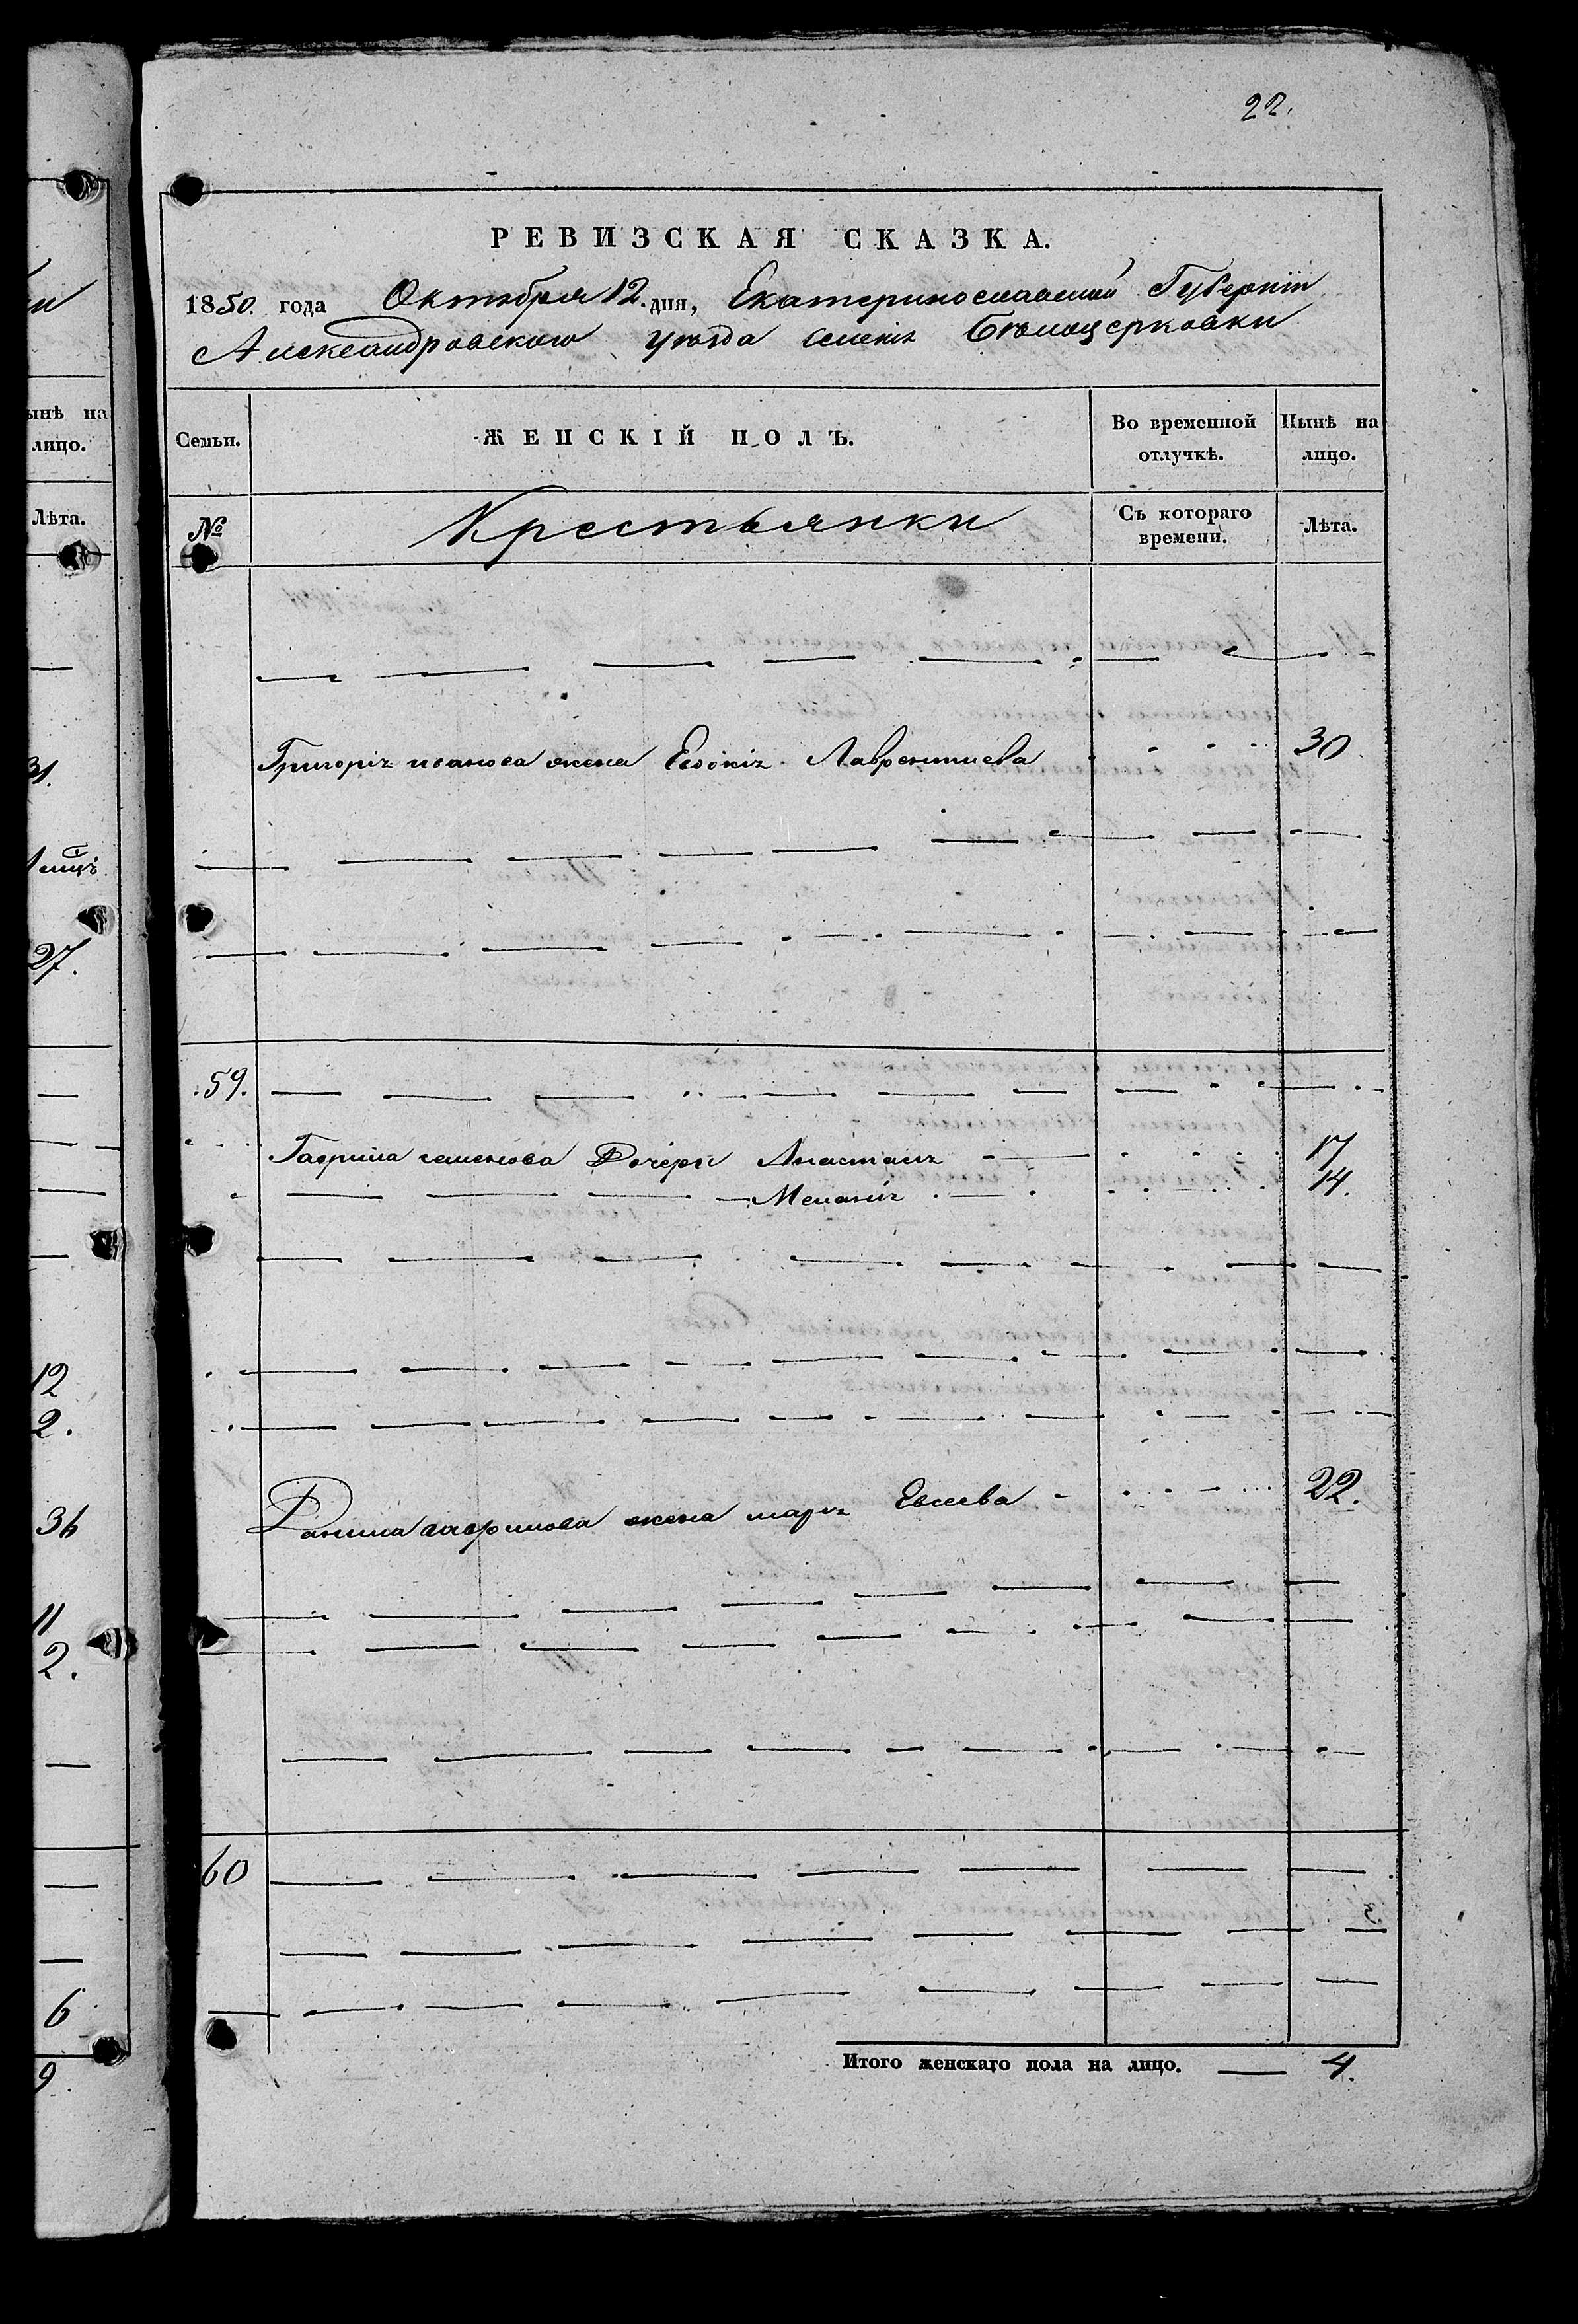 22.
РЕВИЗСКАЯ СКАЗКА.
1850. года Октября 12. дня, Екатеринославской Губерніи
Александровского уѣзда селенія Бѣлоцерковки
ынѣ на
лицо.
Лѣта.
31.
27.
12
2.
36
11
2.
6
9.
Семьи. ЖЕНСКІЙ ПОЛЪ. Во временной отлучкѣ. Нынѣ на лицо.
№ Крестьянки Съ котораго времени. Лѣта.
Григорія иванова жена Евдокія Лаврентиева 30
59.
Гаврила семенова Дочери Анастасия 17
Меланія 14.
Данила гаврилова жена маря Евсеева 22.
60
Итого женскаго пола на лицо. 4.